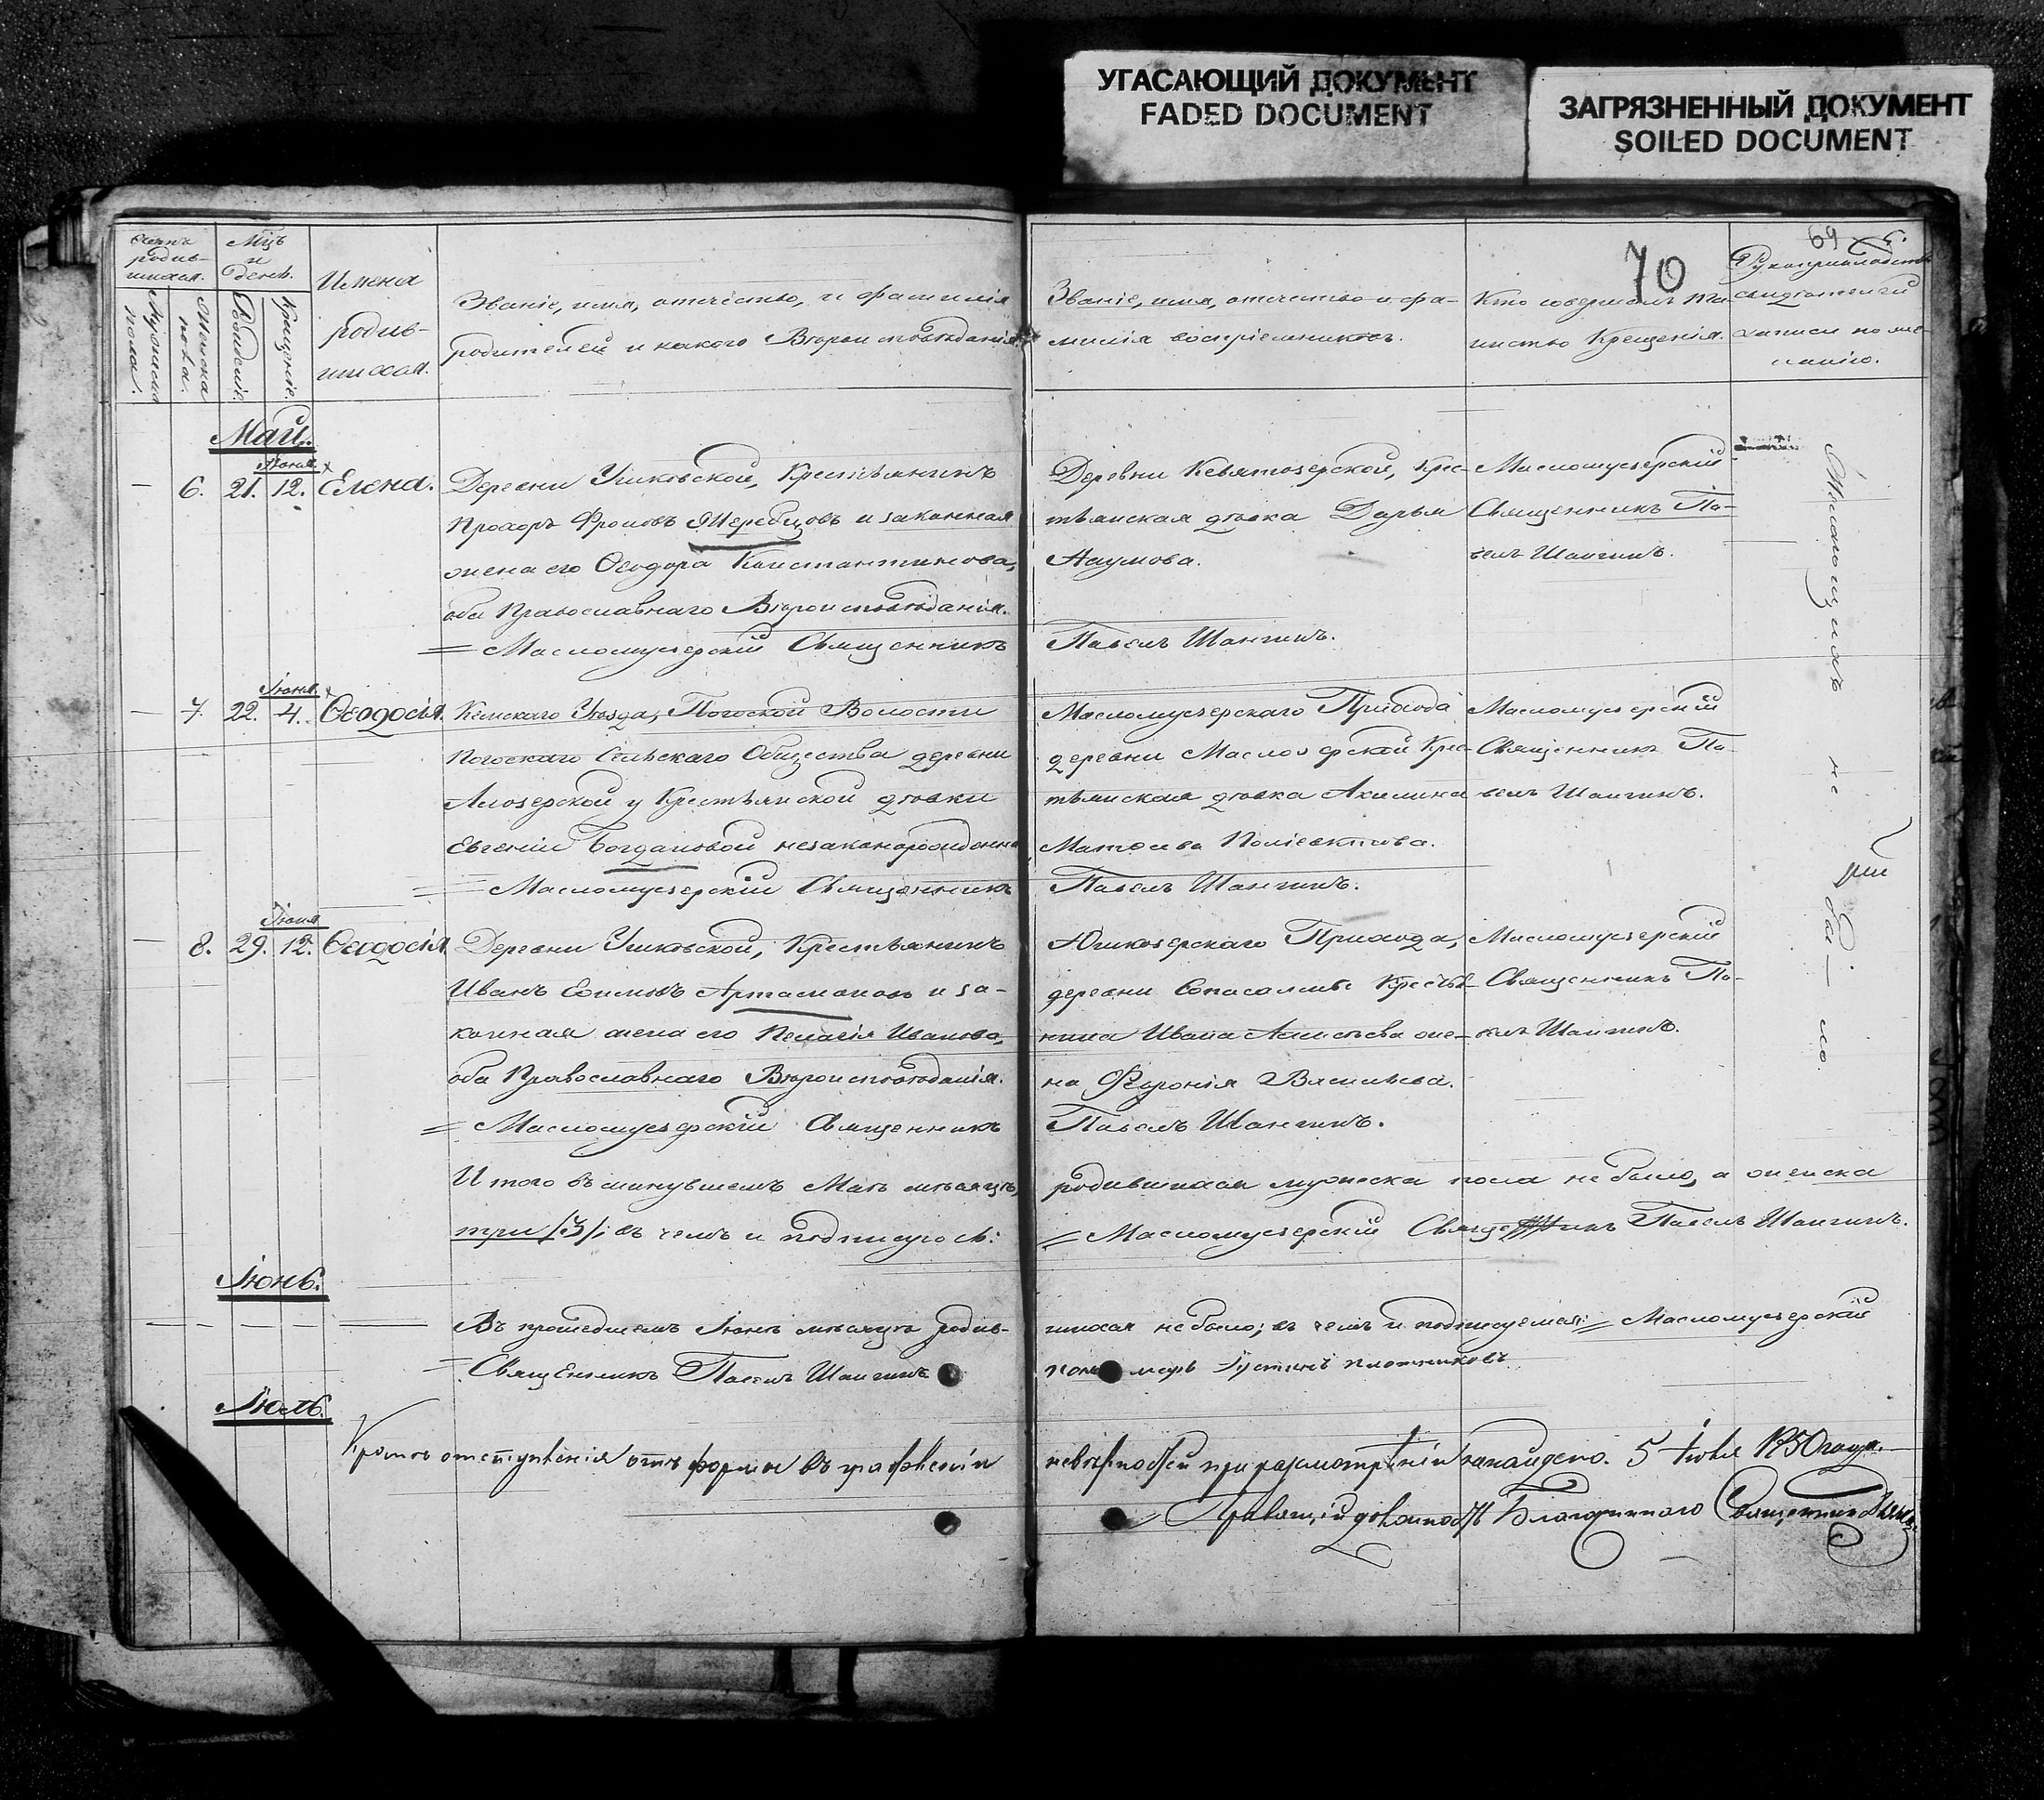 УГАСАЮЩИЙ ДОКУМЕНТ
FADED DOCUMENT
ЗАГРЯЗНЕННЫЙ ДОКУМЕНТ
SOILED DOCUMENT
69
70
родив-
шихся.
Мужеска
пола.
Женска
пола.
Мцъ
и
день.
Рожденіе.
Крещеніе.
Имена
родив-
шихся.
Званіе, имя, отечество, и фамилія
родителей и какого Вѣроисповѣданія.
Званіе, имя, отечество и фа-
милія воспріемниковъ.
Кто совершалъ та-
инство Крещенія.
Рукоприкладство
свидѣтелей
записи по же-
ланію.
Май.
— 6. 21. Іюня 12. Елена.
Деревни Ушковской, Крестьянинъ
Прохоръ Фроловъ Жеребцовъ и законная
жена его Ѳеодора Константинова,
оба Православнаго Вѣроисповѣданія.
= Масломузерскій Священникъ
Деревни Кевятозерской, Крес-
тьянская дѣвка Дарья
Наумова.
Павелъ Шангинъ.
Масломузерскій
Священникъ Па-
велъ Шангинъ.
Желающихъ не бы-ло.
— 7. 22. Іюня 4. Ѳеодосья.
Кемскаго Уѣзда, Погоской Волости
Погоскаго Сельскаго Общества деревни
Алозерской у Крестьянской дѣвки
Евгеніи Богдановой незаконорожденна
= Масломузерскій Священникъ
Масломузерскаго Прихода
деревни Маслозерской Крес-
тьянская дѣвка Акилина
Матѳиева Поліевктова.
Павелъ Шангинъ.
Масломузерскій
Священникъ Па-
велъ Шангинъ.
— 8. 29. Іюня 12. Ѳеодосія
Деревни Ушковской, Крестьянинъ
Иванъ Ефимовъ Артамоновъ и за-
конная жена его Пелагія Иванова,
оба Православнаго Вѣроисповѣданія.
= Масломузерскій Священникъ
Юшкозерскаго Прихода,
деревни
нина Ивана же-
на Февронія Васильева.
Павелъ Шангинъ.
Масломузерскій
Священникъ Па-
велъ Шангинъ.
Итого въ минувшемъ Маѣ мѣсяцѣ,
родившихся мужеска пола не было, а женска
три /3/; въ чемъ и подписуюсь:
= Масломузерскій Священникъ Павелъ Шангинъ.
Іюнь.
Въ прошедшемъ Іюнѣ мѣсяцѣ родив-
шихся не было; въ чемъ и подписуемся: = Масломузерскій
= Священникъ Павелъ Шангинъ
пономарь Іустинъ Плотниковъ
Іюль.
Кромѣ отступленія отъ формы въ графленіи
невѣрностей при разсмотрѣніи ненайдено. 5 Іюля 1850 года.
Правящій должность Благочиннаго Священникъ